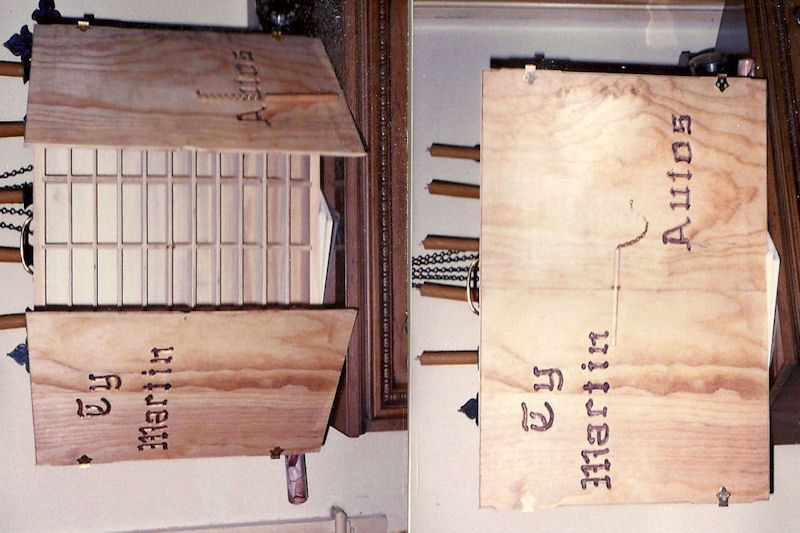 Ty
Martin
Autos
Ty
Martin
Autos